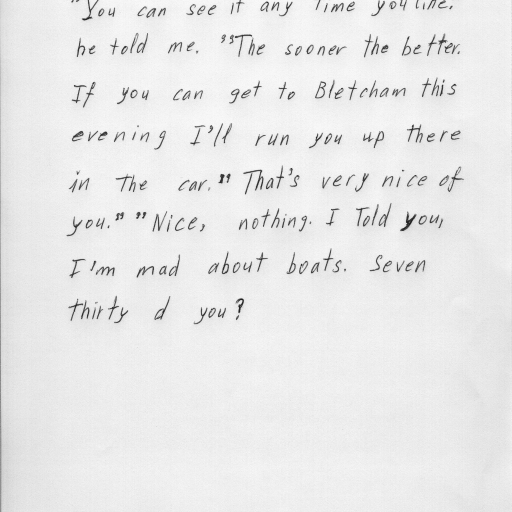 "You can see it any time you like.
he told me. "The sooner the better.
If you can get to Bletcham this
evening I'll run you up there
in the car." That's very nice of
you." "Nice, nothing. I Told you,
I'm mad about boats. Seven
thirty d you?